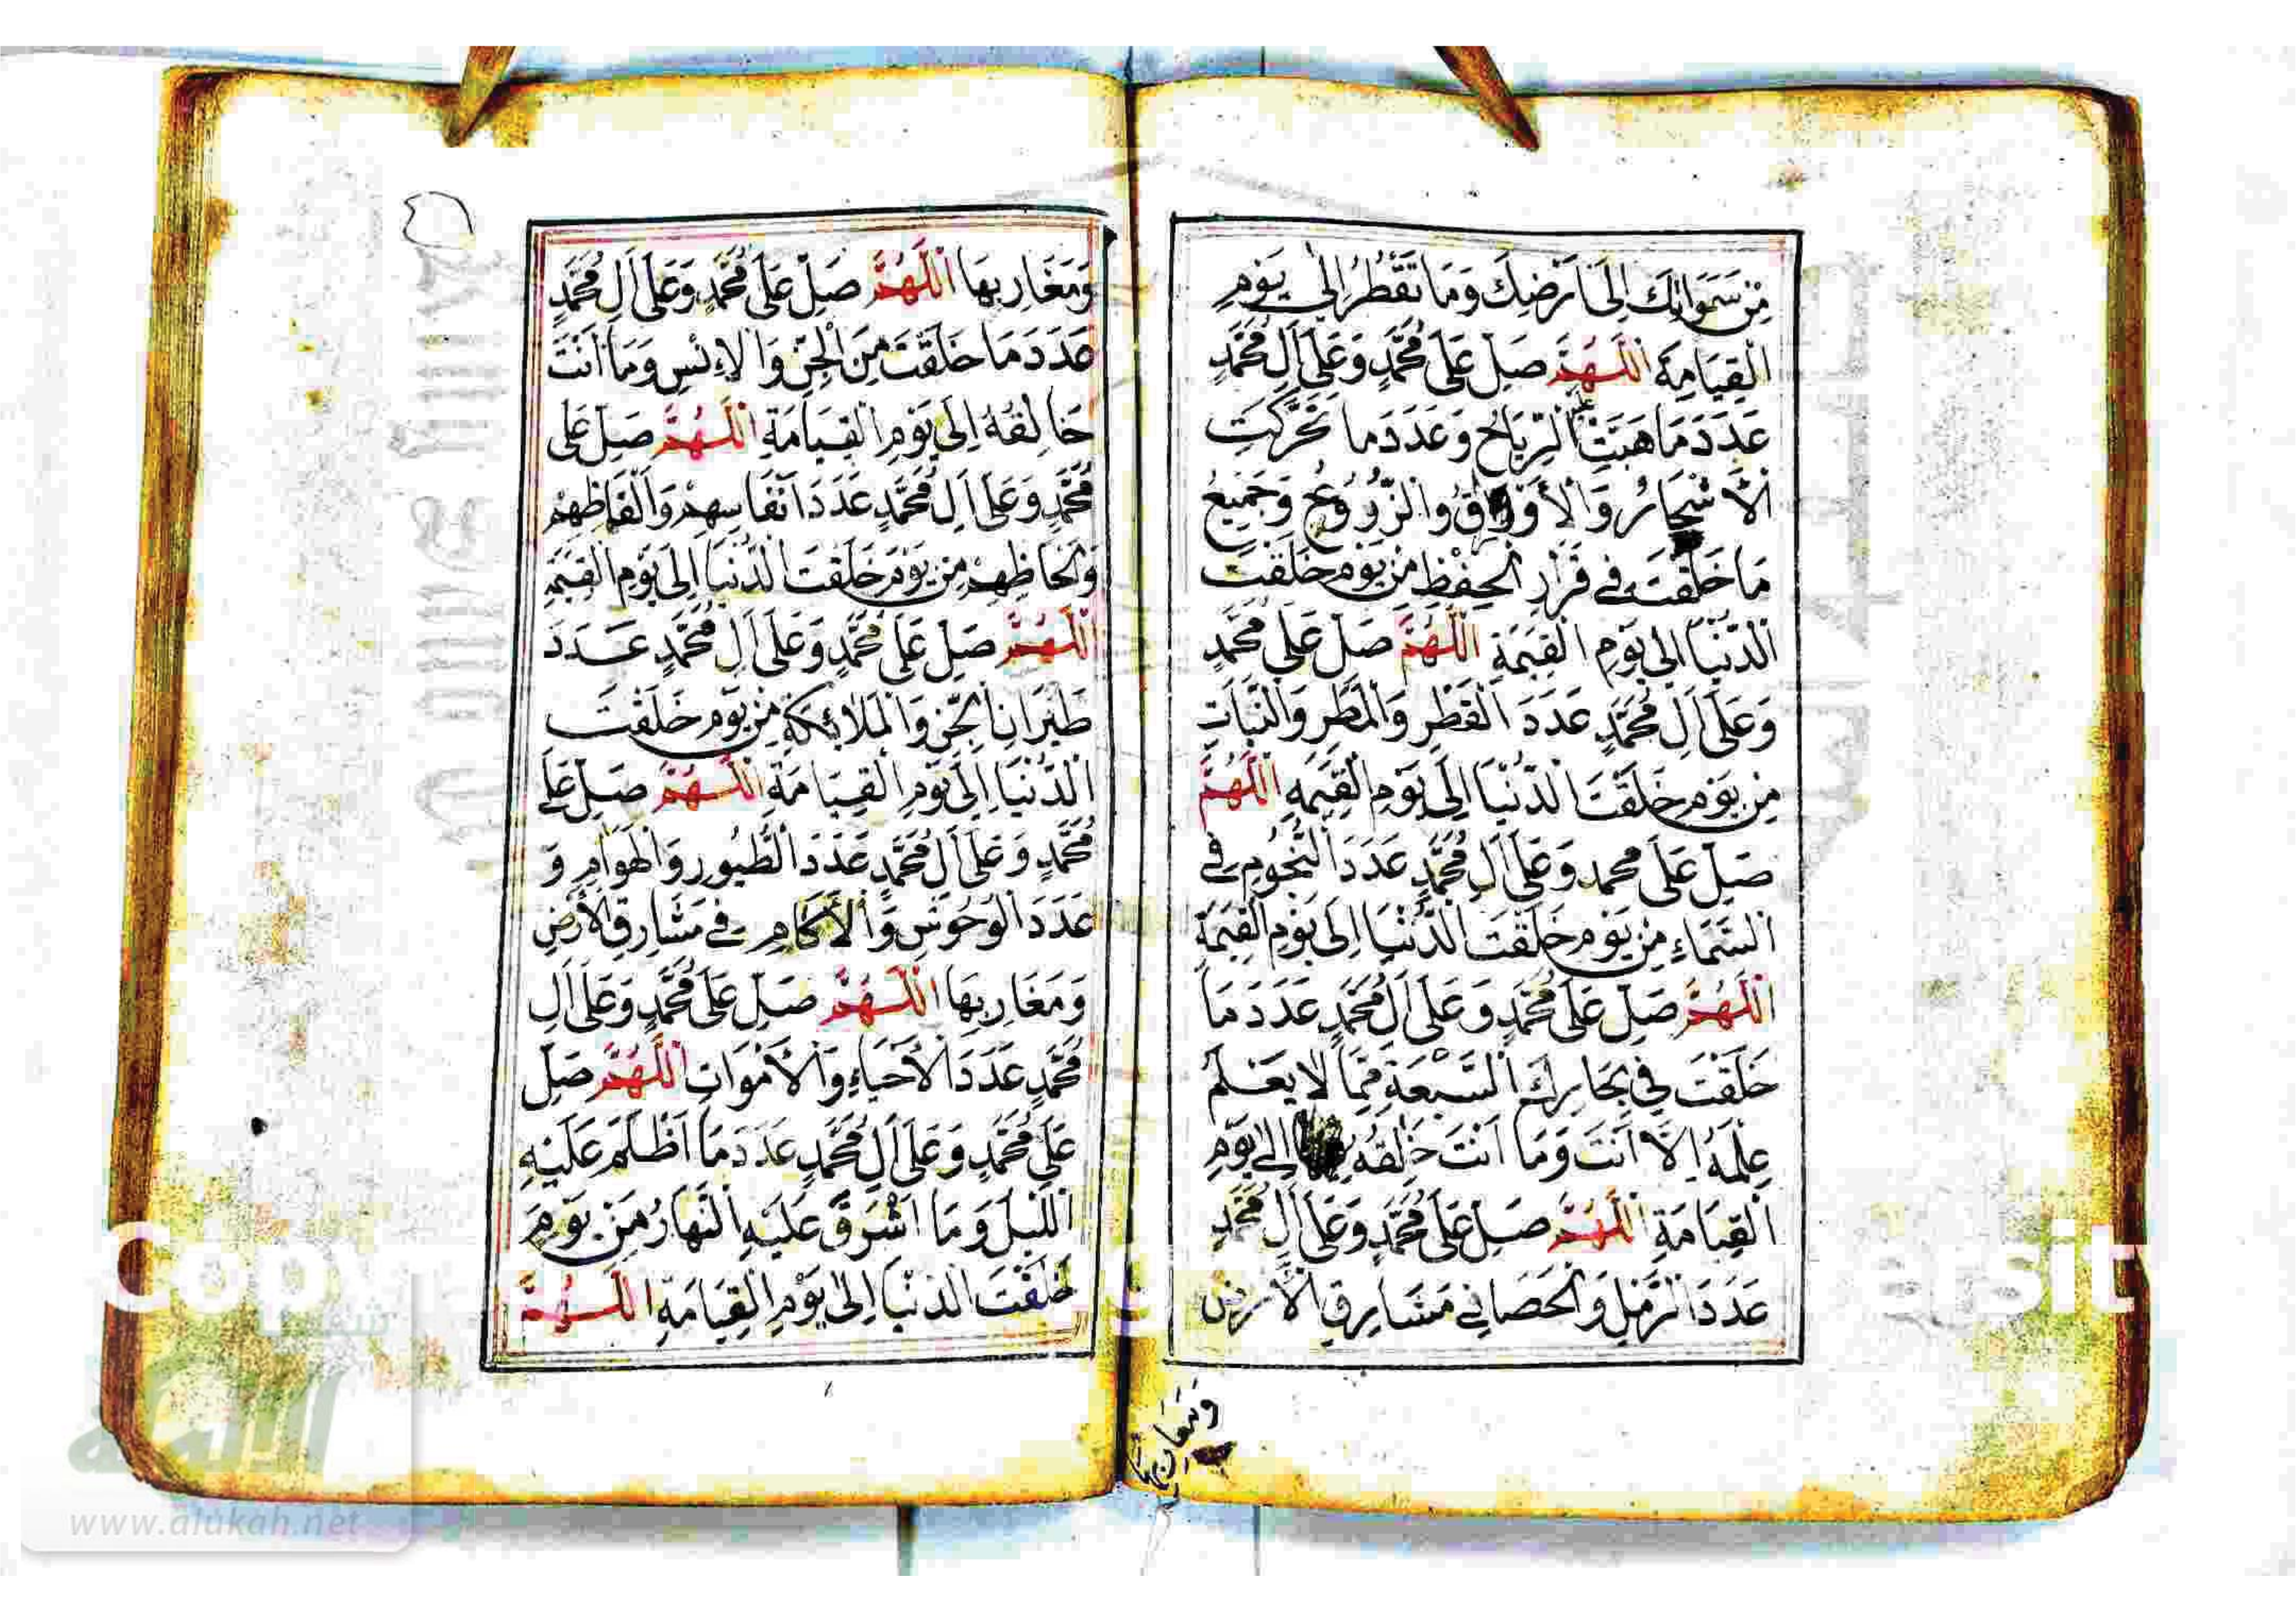 مِنْ سَمَوَاتِكَ إِلَى أَرْضِكَ وَمَا تَقَطَّرَ إِلَى يَوْمِ
الْقِيَامَةِ اَللّٰهُمَّ صَلِّ عَلَى مُحَمَّدٍ وَعَلَى آلِ مُحَمَّدٍ
عَدَدَ مَا هَبَّتِ الرِّيَاحُ وَعَدَدَ مَا تَحَرَّكَتِ
الْأَشْجَارُ وَالْأَوْرَاقُ وَالزُّرُوعُ وَجَمِيعُ
مَا خَلَقْتَ فِي قَرَارِ الْحِفْظِ مِنْ يَوْمِ خَلَقْتَ
الدُّنْيَا إِلَى يَوْمِ الْقِيَمَةِ اَللّٰهُمَّ صَلِّ عَلَى مُحَمَّدٍ
وَعَلَى آلِ مُحَمَّدٍ عَدَدَ الْقَطْرِ وَالْمَطَرِ وَالنَّبَاتِ
مِنْ يَوْمِ خَلَقْتَ الدُّنْيَا إِلَى يَوْمِ الْقِيَمَةِ اَللّٰهُمَّ
صَلِّ عَلَى محمد وَعَلَى آلِ مُحَمَّدٍ عَدَدَ النُّجُومِ فِي
السَّمَاءِ مِنْ يَوْمِ خَلَقْتَ الدُّنْيَا إِلَى يَوْمِ الْقِيَمَةِ
اَللّٰهُمَّ صَلِّ عَلَى مُحَمَّدٍ وَعَلَى آلِ مُحَمَّدٍ عَدَدَ مَا
خَلَقْتَ فِي بِحَارِكَ السَّبْعَةِ مِمَّا لَا يَعْلَمُ
عِلْمَهُ إِلَّا أَنْتَ وَمَا أَنْتَ خَالِقُهُ إِلَى يَوْمِ
الْقِيَامَةِ اَللّٰهُمَّ صَلِّ عَلَى مُحَمَّدٍ وَعَلَى آلِ مُحَمَّدٍ
عَدَدَ الرَّمْلِ وَالْحَصَا فِي مَشَارِقِ الْأَرْضِ
وَمَغَارِبِهَا
وَمَغَارِبِهَا اَللّٰهُمَّ صَلِّ عَلَى مُحَمَّدٍ وَعَلَى آلِ مُحَمَّدٍ
عَدَدَ مَا خَلَقْتَ مِنَ الْجِنِّ وَالْإِنْسِ وَمَا أَنْتَ
خَالِقُهُ إِلَى يَوْمِ الْقِيَامَةِ اَللّٰهُمَّ صَلِّ عَلَى
مُحَمَّدٍ وَعَلَى آلِ مُحَمَّدٍ عَدَدَ أَنْفَاسِهِمْ وَأَلْفَاظِهِمْ
وَأَلْحَاظِهِمْ مِنْ يَوْمِ خَلَقْتَ الدُّنْيَا إِلَى يَوْمِ الْقِيَمَةِ
اَللّٰهُمَّ صَلِّ عَلَى مُحَمَّدٍ وَعَلَى آلِ مُحَمَّدٍ عَدَدَ
طَيَرَانِ الْجِنِّ وَالْمَلَائِكَةِ مِنْ يَوْمِ خَلَقْتَ
الدُّنْيَا إِلَى يَوْمِ الْقِيَامَةِ اَللّٰهُمَّ صَلِّ عَلَى
مُحَمَّدٍ وَعَلَى آلِ مُحَمَّدٍ عَدَدَ الطُّيُورِ وَالْهَوَامِ وَ
عَدَدَ الْوُحُوشِ وَالْأَكَامِ فِي مَشَارِقِ الْأَرْضِ
وَمَغَارِبِهَا اَللّٰهُمَّ صَلِّ عَلَى مُحَمَّدٍ وَعَلَى آلِ
مُحَمَّدٍ عَدَدَ الْأَحْيَاءِ وَالْأَمْوَاتِ اَللّٰهُمَّ صَلِّ
عَلَى مُحَمَّدٍ وَعَلَى آلِ مُحَمَّدٍ عَدَدَ مَا أَظْلَمَ عَلَيْهِ
اللَّيْلُ وَمَا أَشْرَقَ عَلَيْهِ النَّهَارُ مِنْ يَوْمِ
خَلَقْتَ الدُّنْيَا إِلَى يَوْمِ الْقِيَامَةِ اَللّٰهُمَّ
شبكة
الألوكة
www.alukah.net